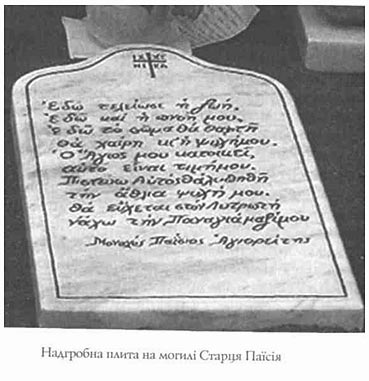 ΙΣ ΧΣ
ΝΙ ΚΑ
Ἐδῶ τελείωσε ἡ ζωή.
Ἐδῶ καί ἡ πνοή μου.
Ἐδῶ τό σῶμα θά θαφτῆ
Θά χαίρη κι' ἡ ψυχή μου.
Ὁ Ἅγιος μου κατοικεῖ,
αὐτό εἶναι τιμή μου.
Πιστεύω Αὐτός θά λυπηθῆ
τήν ἄθλια ψυχή μου.
Θά εὔχεται στόν Λυτρωτή
νἄχω τήν Παναγιά μαζί μου
Μοναχός Παΐσιος Ἁγιορείτης
Надгробна плита на могилі Старця Паїсія